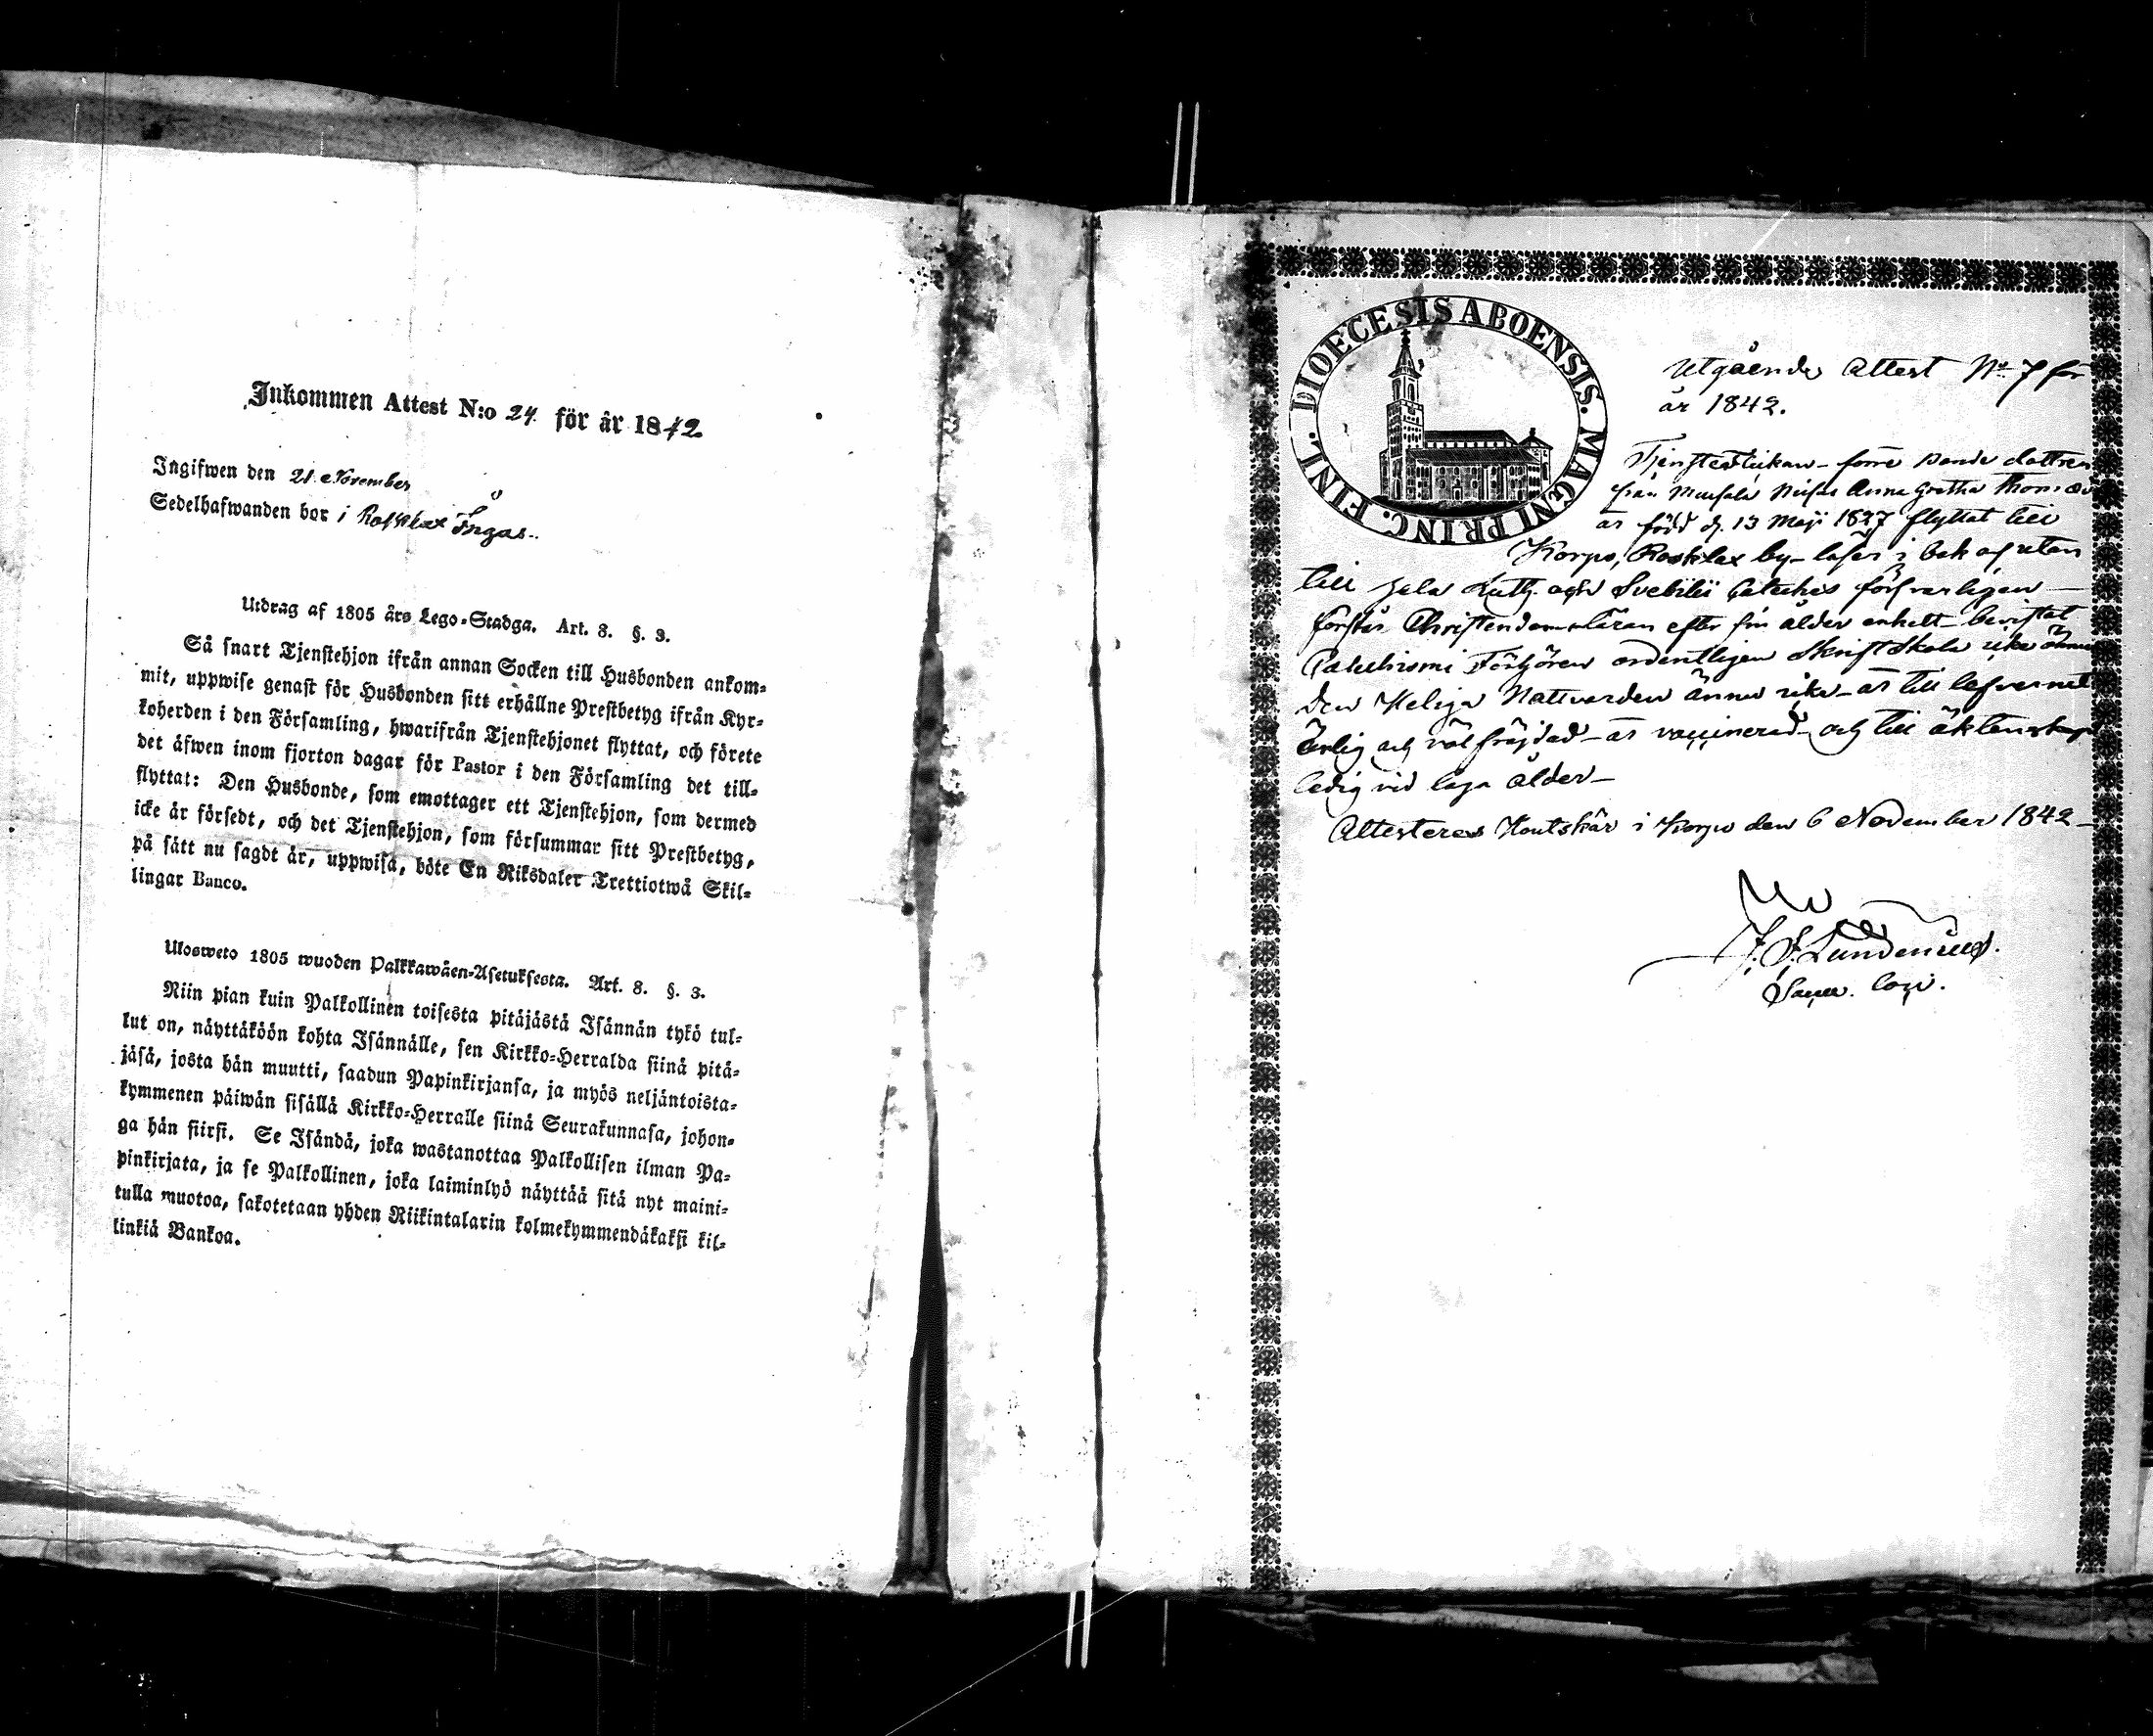 Inkommen Attest N:o 24. för år 1842.
Ingifwen den 21 November
Sedelhafwanden bor i Rosklax Ingas..
Utdrag af 1805 års Lego-Stadga. Art. 8. §. 3.
Så snart Tjenstehjon ifrån annan Socken till Husbonden ankom-
mit, uppwise genast för Husbonden sitt erhållne Prestbetyg ifrån Kyr-
koherden i den Församling, hwarifrån Tjenstehjonet flyttat, och förete
det äfwen inom fjorton dagar för Pastor i den Församling det till-
flyttat: Den Husbonde, som emottager ett Tjenstehjon, som dermed
icke är försedt, och det Tjenstehjon, som försummar sitt Prestbetyg,
på sätt nu sagdt är, uppwisa, böte En Riksdaler Trettiotwå Skil-
lingar Banco.
Ulosweto 1805 wuoden Palkkawäen-Asetuksesta. Art. 8. §. 3.
Niin pian kuin Palkollinen toisesta pitäjästä Isännän tykö tul-
lut on, näyttäköön kohta Isännälle, sen Kirkko-Herralda siinä pitä-
jäsä, josta hän muutti, saadun Papinkirjansa, ja myös neljäntoista-
kymmenen päiwän sisällä Kirkko-Herralle siinä Seurakunnasa, johon-
ga hän siirsi. Se Isändä, joka wastanottaa Palkollisen ilman Pa-
pinkirjata, ja se Palkollinen, joka laiminlyö näyttää sitä nyt maini-
tulla muotoa, sakotetaan yhden Riikintalarin kolmekymmendäkaksi kil-
linkiä Bankoa.
DIOECESIS ABOENSIS. MAGNI PRINC. FINL.
Utgående Attest No 7 för
år 1842.
Tjensteflickan förre dottren
från Anna Gretha
är född d. 13 Maji 1827 flyttat till
Korpo, Rosklax by - läser i bok af utan
till hela Luth. och Svebilii Cateches försvarligen -
förstår Christendomsläran efter sin ålder enkelt - bevistat
Catechismi Förhören ordentligen Skriftskola icke ännu
den Heliga Nattvarden ännu icke - är till lefvernet
ärlig och välfräjdad - är vaccinerad - och till äktenskap
ledig vid laga ålder -
Attesteras Houtskär i Korpo den 6 November 1842 -
J. J. Lundenius.